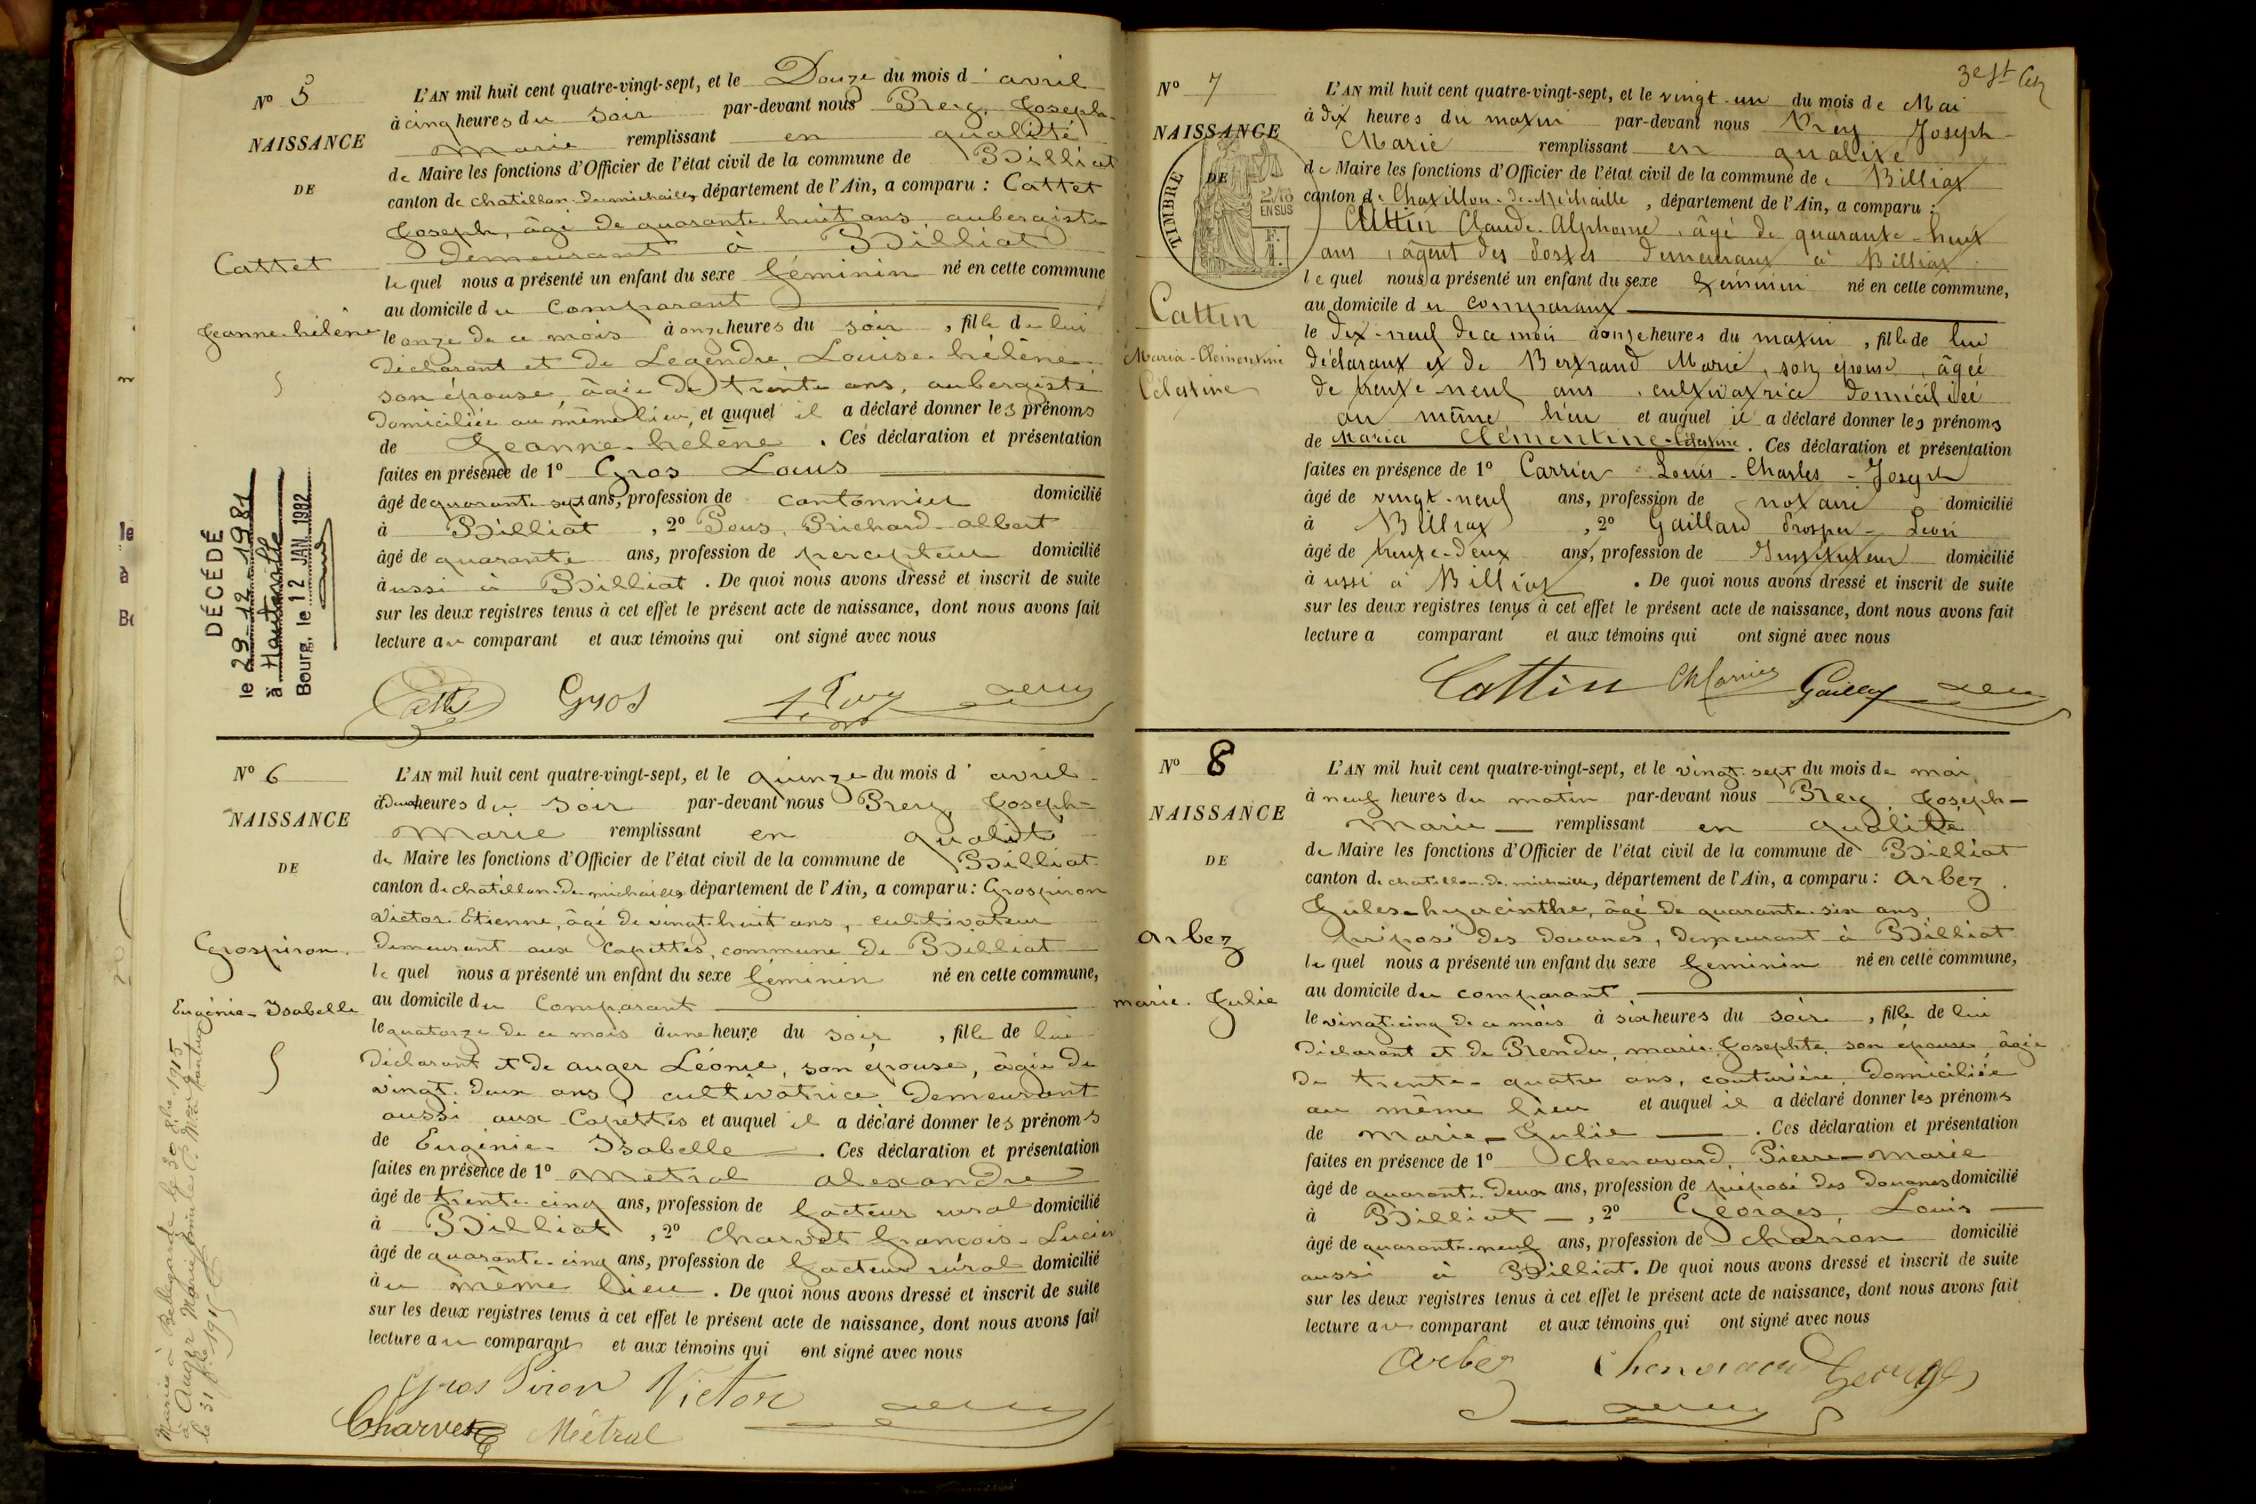 No 5
NAISSANCE
DE
Cattet
Jeanne-hélène
L'AN mil huit cent quatre-vingt-sept, et le Douze du mois d'avril
à cinq heures du soir par-devant nous Prery, Joseph-
Marie remplissant en qualité
de Maire les fonctions d'Officier de l'état civil de la commune de Billiat
canton de chatillon-de-michaille, département de l'Ain, a comparu : Cattet
Joseph, âgé de quarante-huit ans aubergiste
demeurant à Billiat
lequel nous a présenté un enfant du sexe féminin né en cette commune
au domicile du comparant
le onze de ce mois à onze heures du soir, fille de lui
déclarant et de Legendre Louise-hélène
son épouse, âgée de trente ans, aubergiste
domiciliée au même lieu, et auquel il a déclaré donner les prénoms
de Jeanne-hélène. Ces déclaration et présentation
faites en présence de 1º Gros Louis
âgé de quarante-sept ans, profession de cantonnier domicilié
à Billiat, 2º Pous, Richard-albert
âgé de quarante ans, profession de percepteur domicilié
aussi à Billiat. De quoi nous avons dressé et inscrit de suite
sur les deux registres tenus à cet effet le présent acte de naissance, dont nous avons fait
lecture au comparant et aux témoins qui ont signé avec nous
Gros
DÉCÉDÉ
le 29-12-1981
à Hauteville
Bourg, le 12 JAN. 1982
No 6
NAISSANCE
DE
Grospiron
Eugénie-Isabelle
L'AN mil huit cent quatre-vingt-sept, et le quinze du mois d'avril
à deux heures du soir par-devant nous Prery, Joseph-
Marie remplissant en qualité
de Maire les fonctions d'Officier de l'état civil de la commune de Billiat
canton de chatillon-de-michaille, département de l'Ain, a comparu : Grospiron
Victor-Etienne, âgé de vingt-huit ans, cultivateur
demeurant aux Capettes, commune de Billiat
lequel nous a présenté un enfant du sexe féminin né en cette commune,
au domicile du comparant
le quatorze de ce mois à une heure du soir, fille de lui
déclarant et de auger Léonie, son épouse, âgée de
vingt-deux ans cultivatrice demeurant
aussi aux Capettes et auquel il a déclaré donner les prénoms
de Eugénie-Isabelle. Ces déclaration et présentation
faites en présence de 1º Métral alexandre
âgé de trente-cinq ans, profession de facteur rural domicilié
à Billiat, 2º Charvet françois-Lucien
âgé de quarante-cinq ans, profession de facteur rural domicilié
au même lieu. De quoi nous avons dressé et inscrit de suite
sur les deux registres tenus à cet effet le présent acte de naissance, dont nous avons fait
lecture au comparant et aux témoins qui ont signé avec nous
Gros Piron Victor
Charvet Métral
Marié à Bellegarde le 30 8bre 1915
à Auger Marie
le 31
3e
No 7
NAISSANCE
DE
TIMBRE
2/10
EN SUS
Cattin
Maria-Clémentine
Célestine
L'AN mil huit cent quatre-vingt-sept, et le vingt-un du mois de Mai
à dix heures du matin par-devant nous Prery Joseph-
Marie remplissant en qualité
de Maire les fonctions d'Officier de l'état civil de la commune de Billiat
canton de Chatillon-de-Michaille, département de l'Ain, a comparu :
Cattin Claude-Alphonse, âgé de quarante-huit
ans, agent des Postes demeurant à Billiat
lequel nous a présenté un enfant du sexe féminin né en cette commune,
au domicile du comparant
le dix-neuf de ce mois à onze heures du matin, fille de lui
déclarant et de Bertrand Marie, son épouse, âgée
de trente-neuf ans, cultivatrice domiciliée
au même lieu et auquel il a déclaré donner les prénoms
de Maria Clémentine-Célestine. Ces déclaration et présentation
faites en présence de 1º Carrier Louis-Charles-Joseph
âgé de vingt-neuf ans, profession de notaire domicilié
à Billiat, 2º Gaillard Prosper-Léon
âgé de trente-deux ans, profession de Instituteur domicilié
aussi à Billiat. De quoi nous avons dressé et inscrit de suite
sur les deux registres tenus à cet effet le présent acte de naissance, dont nous avons fait
lecture a comparant et aux témoins qui ont signé avec nous
Cattin Ch Carrier Gaillard
No 8
NAISSANCE
DE
Arbez
Marie-Julie
L'AN mil huit cent quatre-vingt-sept, et le vingt-sept du mois de mai
à neuf heures du matin par-devant nous Prery, Joseph-
Marie remplissant en qualité
de Maire les fonctions d'Officier de l'état civil de la commune de Billiat
canton de chatillon-de-michaille, département de l'Ain, a comparu : Arbez
Jules-hyacinthe, âgé de quarante-six ans
préposé des douanes, demeurant à Billiat
lequel nous a présenté un enfant du sexe féminin né en cette commune,
au domicile du comparant
le vingt-cinq de ce mois à six heures du soir, fille de lui
déclarant et de Prendu, marie-Josephte, son épouse, âgée
de trente-quatre ans, couturière, domiciliée
au même lieu et auquel il a déclaré donner les prénoms
de Marie-Julie. Ces déclaration et présentation
faites en présence de 1º Chenavard, Pierre-Marie
âgé de quarante-deux ans, profession de préposé des douanes domicilié
à Billiat, 2º Georges, Louis
âgé de quarante-neuf ans, profession de charron domicilié
aussi à Billiat. De quoi nous avons dressé et inscrit de suite
sur les deux registres tenus à cet effet le présent acte de naissance, dont nous avons fait
lecture au comparant et aux témoins qui ont signé avec nous
Arbez Chenavard Georges